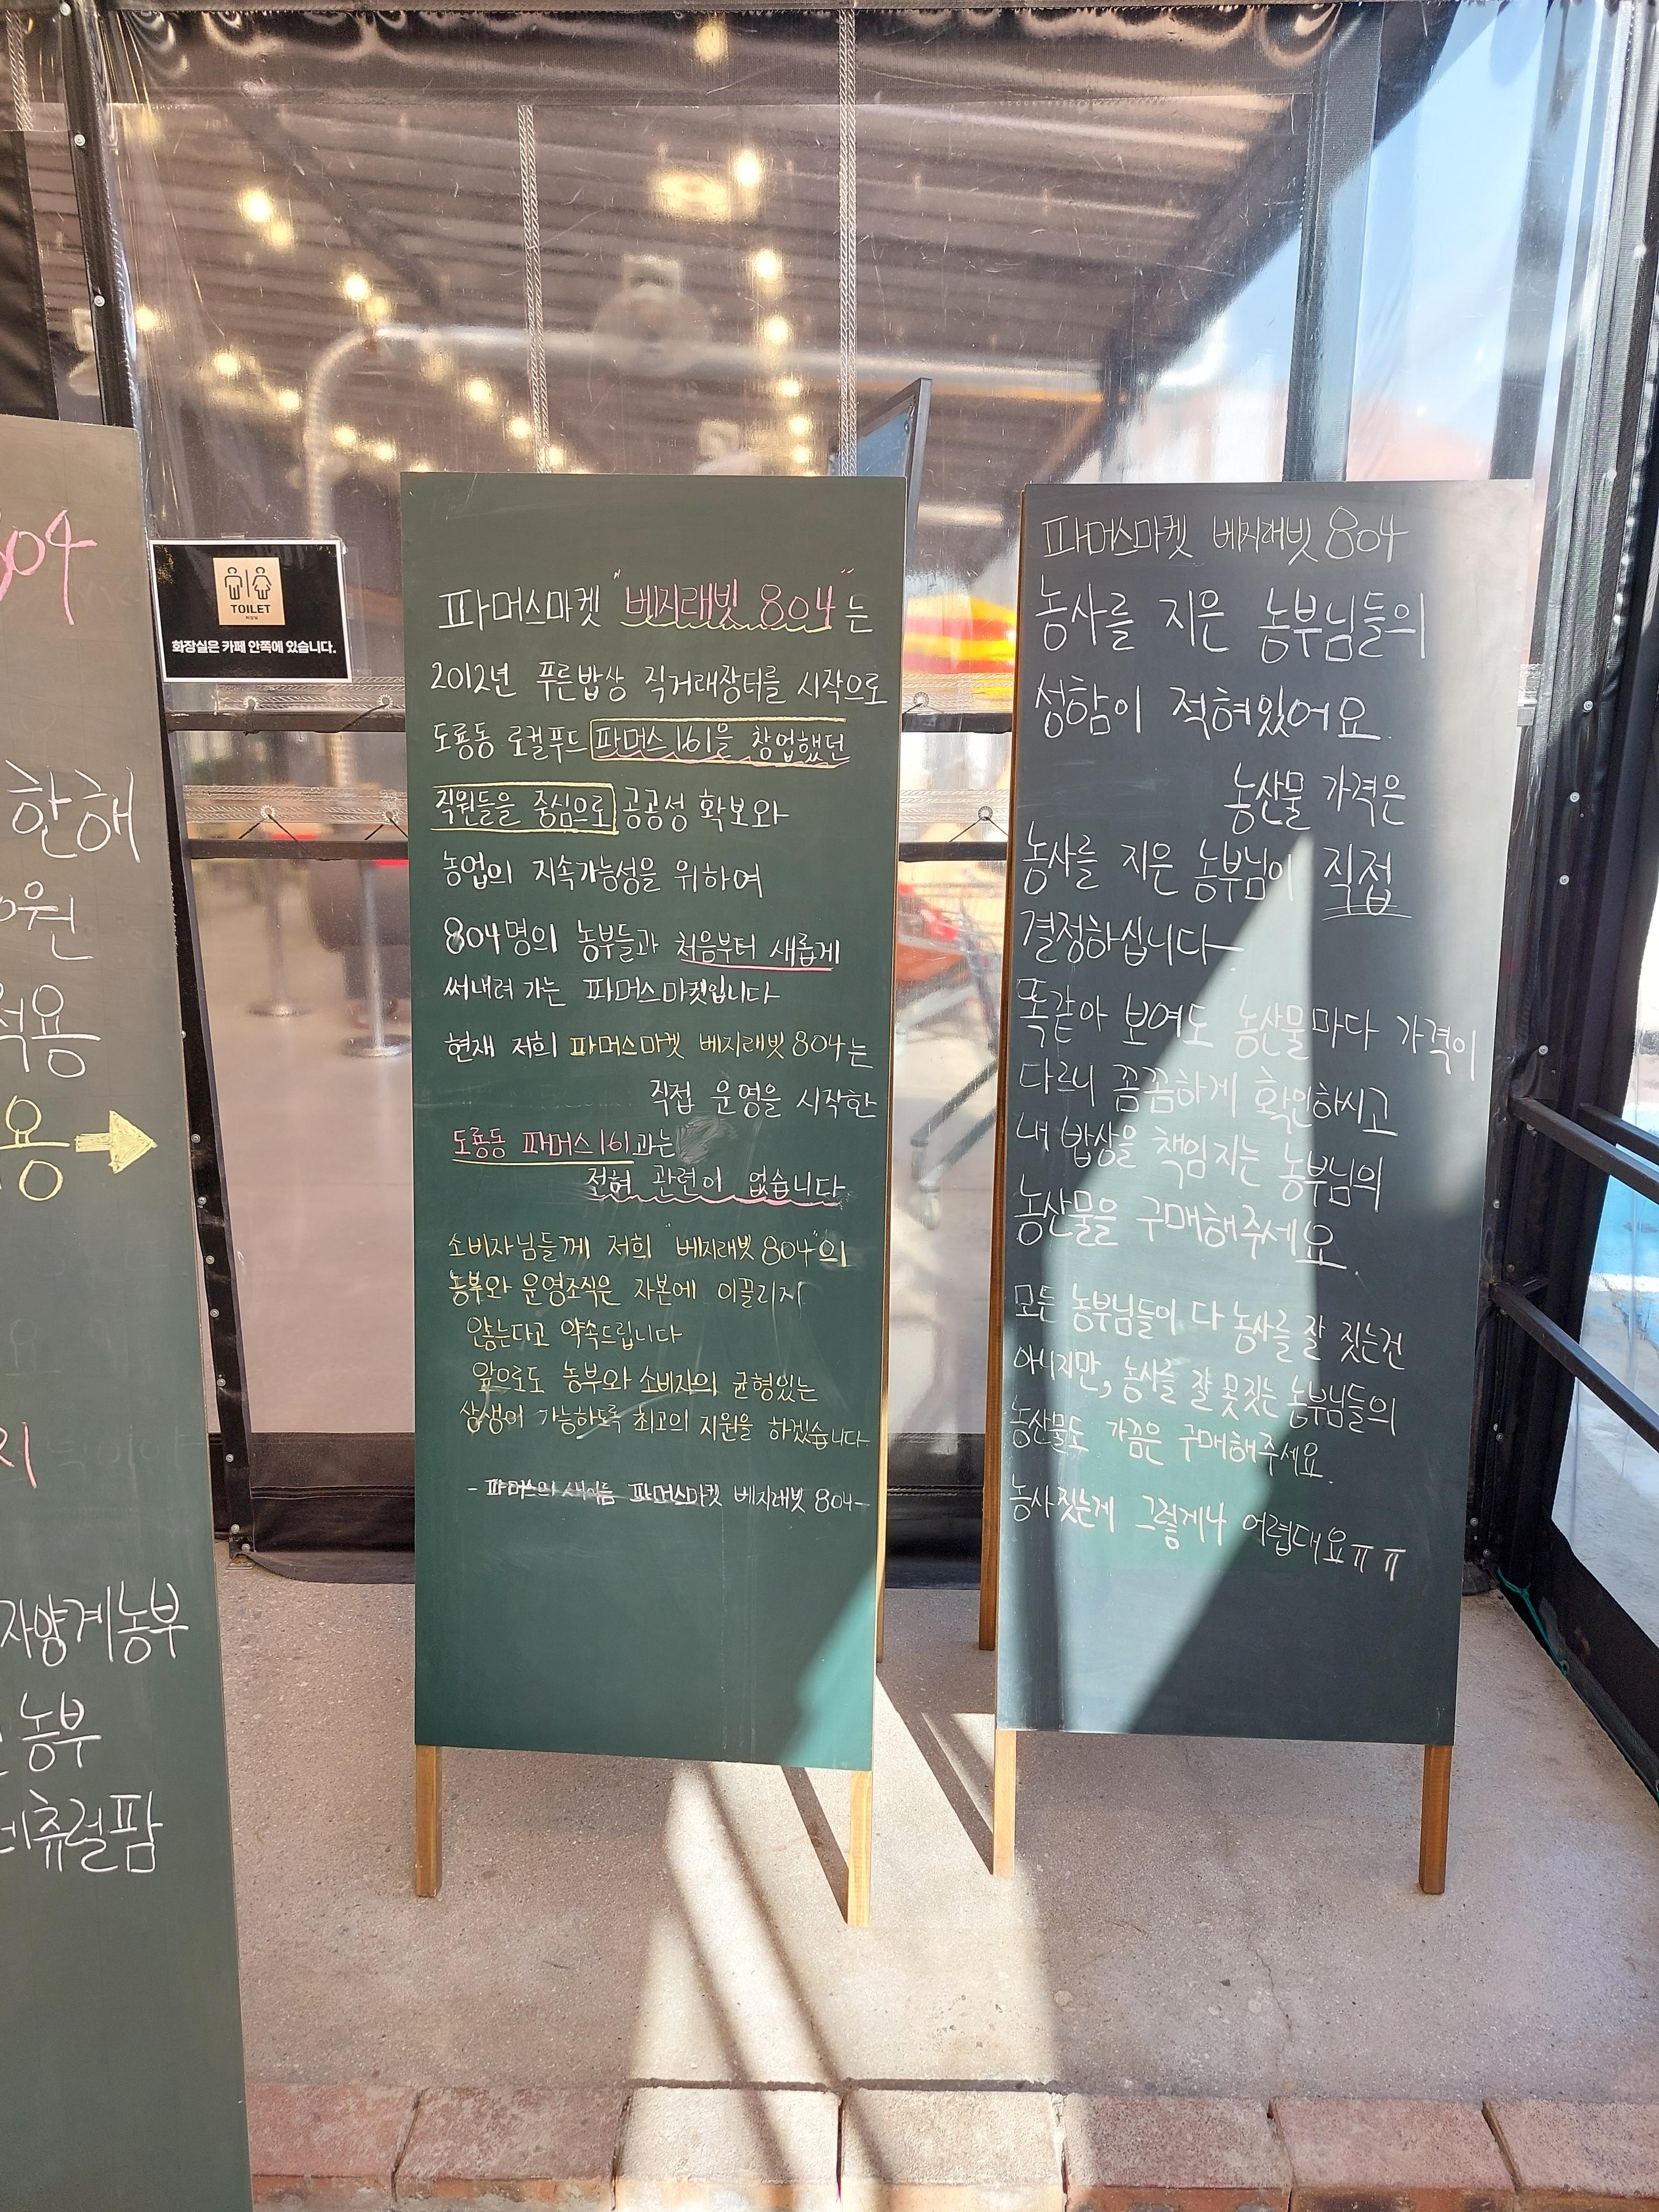 804
한해
0원
적용
용
지
자양계농부
농부
네츄럴팜
TOILET
화장실
화장실은 카페 안쪽에 있습니다.
파머스마켓 "베지래빗 804"는
2012년 푸른밥상 직거래장터를 시작으로
도룡동 로컬푸드 파머스161을 창업했던
직원들을 중심으로 공공성 확보와
농업의 지속가능성을 위하여
804명의 농부들과 처음부터 새롭게
써내려 가는 파머스마켓입니다
현재 저희 파머스마켓 베지래빗 804는
직접 운영을 시작한
도룡동 파머스161과는
전혀 관련이 없습니다
소비자님들께 저희 "베지래빗 804"의
농부와 운영조직은 자본에 이끌리지
않는다고 약속드립니다
앞으로도 농부와 소비자의 균형있는
상생이 가능하도록 최고의 지원을 하겠습니다
- 파머스의 새이름 파머스마켓 베지래빗 804-
파머스마켓 베지래빗 804
농사를 지은 농부님들의
성함이 적혀있어요.
농산물 가격은
농사를 지은 농부님이 직접
결정하십니다~
똑같아 보여도 농산물마다 가격이
다르니 꼼꼼하게 확인하시고
내 밥상을 책임지는 농부님의
농산물을 구매해주세요.
모든 농부님들이 다 농사를 잘 짓는건
아니지만, 농사를 잘 못짓는 농부님들의
농산물도 가끔은 구매해주세요.
농사짓는게 그렇게나 어렵대요ㅠㅠ